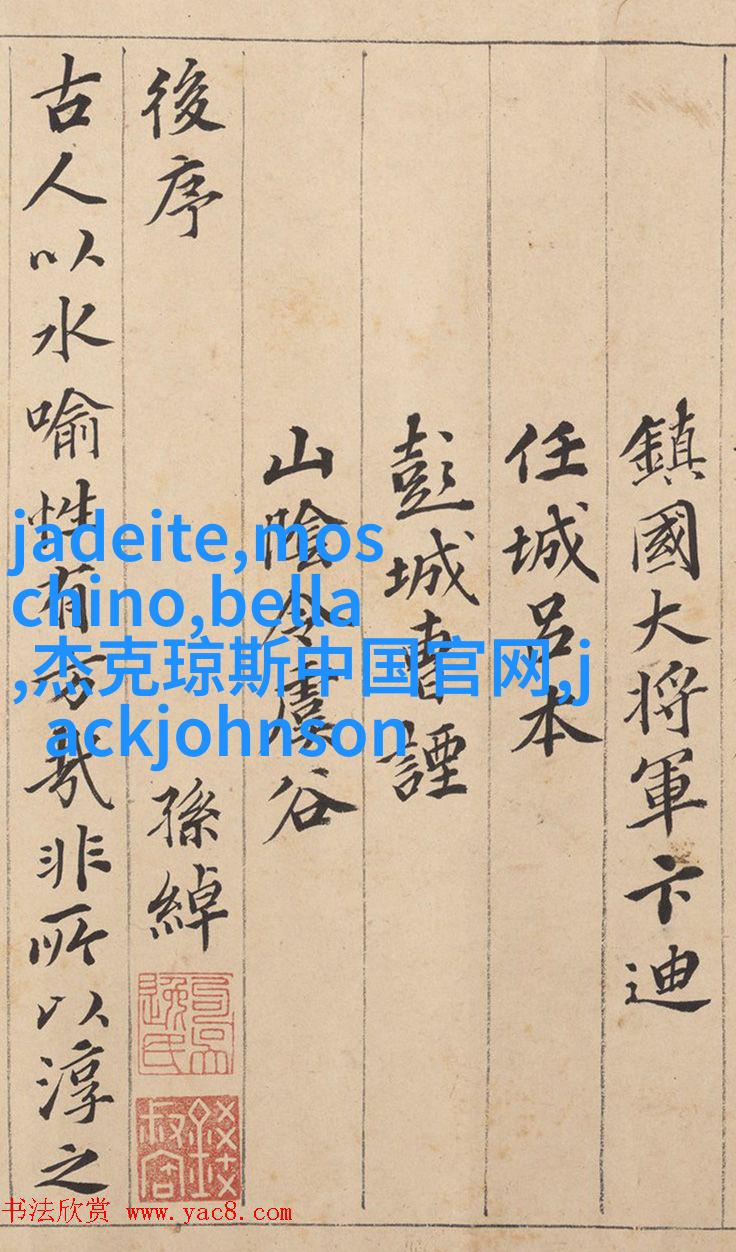 鎮國大將軍卞迪
任城呂本
彭城曹諲
山陰令虞谷
後序
孫綽
古人以水喻性有旨哉非所以淳之
jadeite,mos
chino,bella
,杰克琼斯中国官网,j
ackjohnson
书法欣赏 www.yac8.com